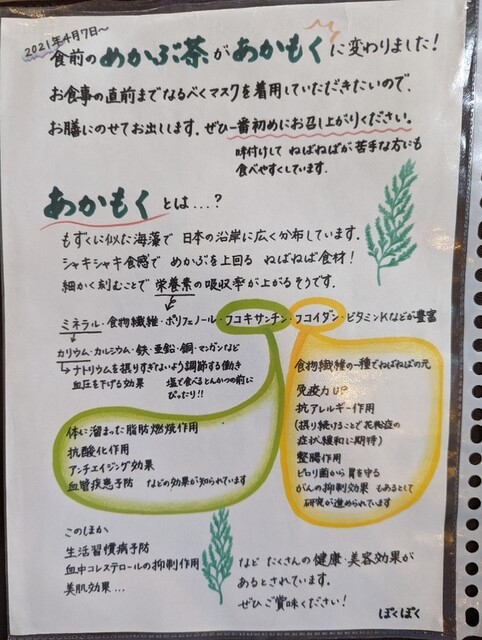 2021年4月7日〜
食前のめかぶ茶があかもくに変わりました!
お食事の直前までなるべくマスクを着用していただきたいので、
お膳にのせてお出しします。ぜひ一番初めにお召し上がりください。
味付けして ねばねばが苦手な方にも
食べやすくしています。
あかもくとは...?
もずくに似た海藻で 日本の沿岸に広く分布しています。
シャキシャキ食感で めかぶを上回る ねばねば食材!
細かく刻むことで栄養素の吸収率が上がるそうです。
ミネラル・食物繊維・ポリフェノール・フコキサンチン・フコイダン・ビタミンKなどが豊富
カリウム・カルシウム・鉄・亜鉛・銅・マンガンなど
→ナトリウムを摂りすぎないよう調節する働き
血圧を下げる効果 塩で食べるとんかつの前に
ぴったり!!
体に溜まった脂肪燃焼作用
抗酸化作用
アンチエイジング効果
血管疾患予防 などの効果が知られています
食物繊維の一種でねばねばの元
免疫力UP
抗アレルギー作用
(摂り続けることで花粉症の
症状緩和に期待)
整腸作用
ピロリ菌から胃を守る
がんの抑制効果 もあるとして
研究が進められています
このほか
生活習慣病予防
血中コレステロールの抑制作用
美肌効果...
など たくさんの健康・美容効果が
あるとされています。
ぜひご賞味ください!
ぼくぼく